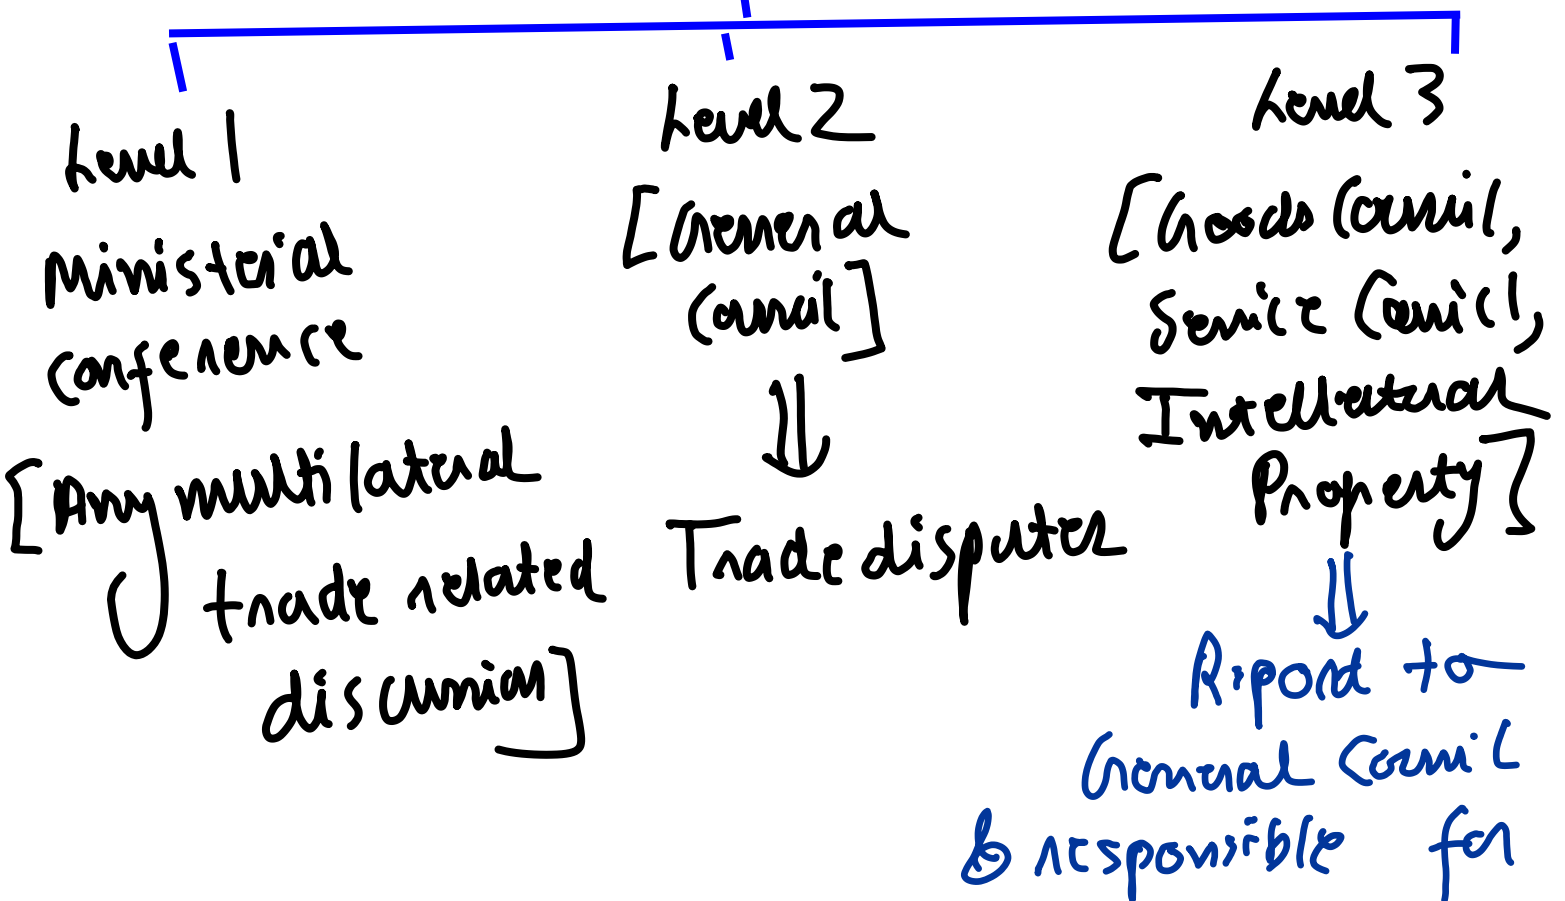 Level 1
Ministerial
conference
[Any multilateral
trade related
discussion]
Level 2
[General
Council]
Trade disputes
Level 3
[Goods Council,
Service Council,
Intellectual
Property]
Report to
General Council
& responsible for